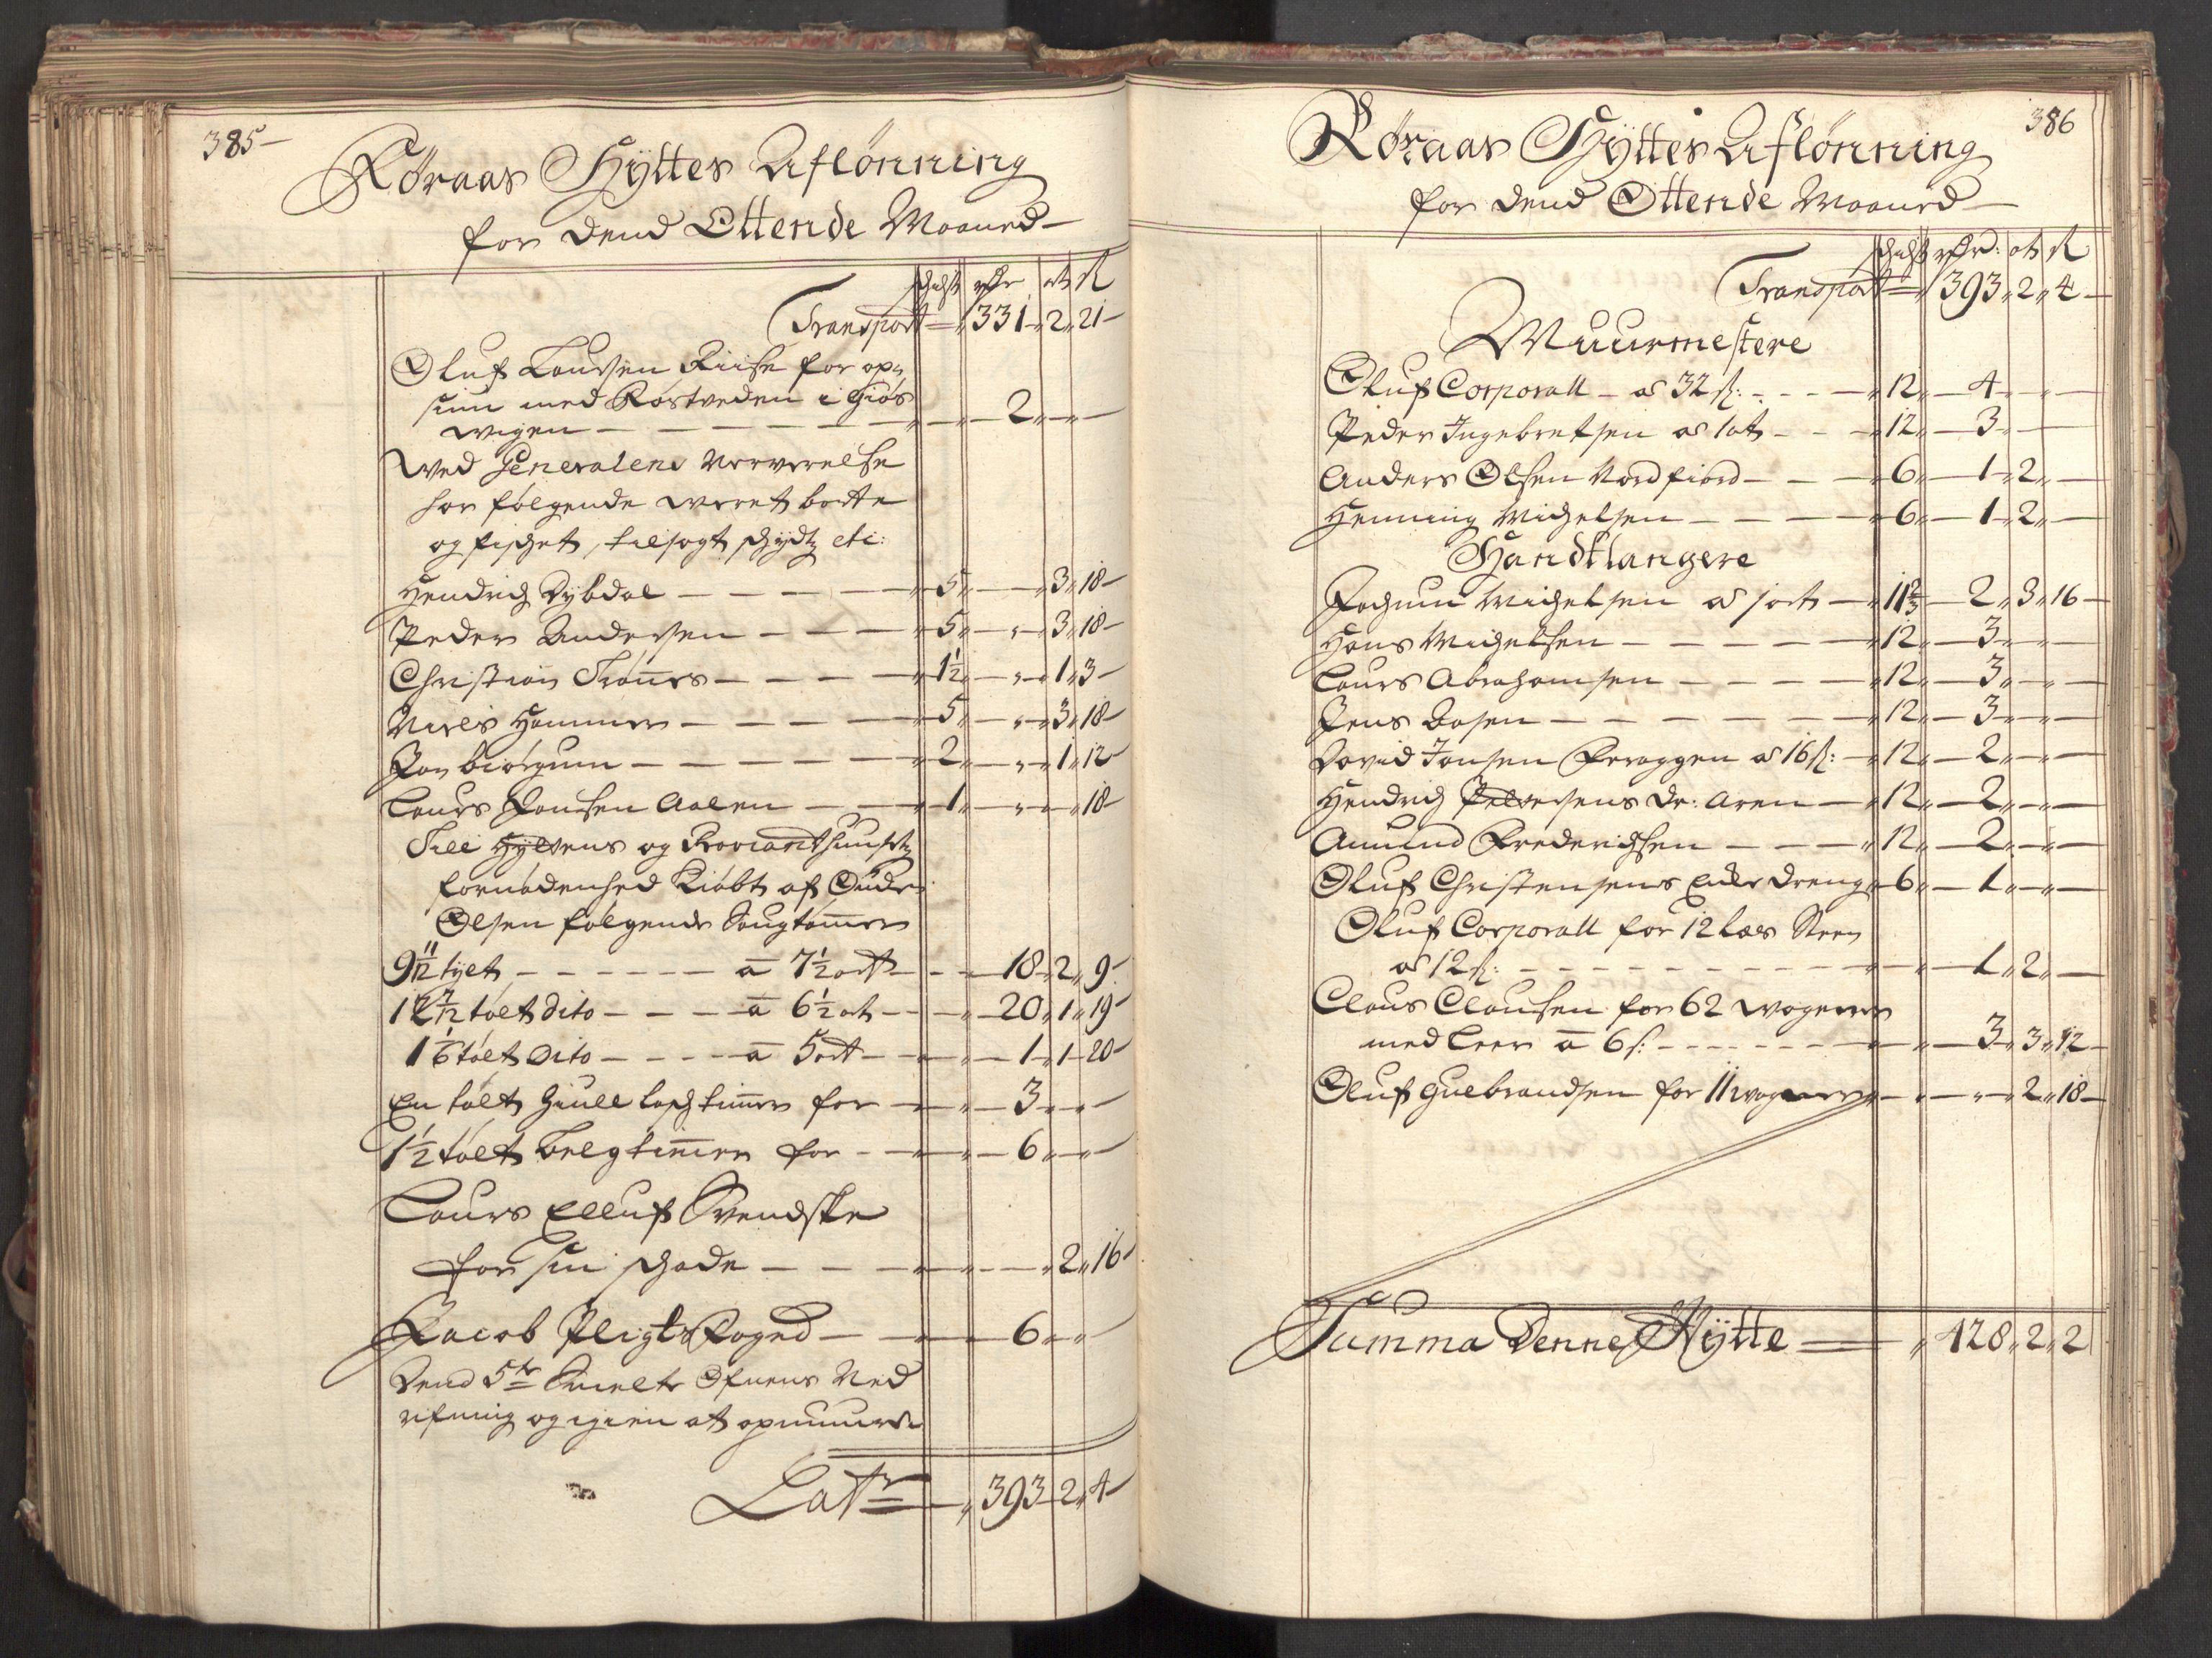 385
Röraas Hÿttes Aflönning
for dend Ottende Maaned
schicht rdr ort s
Transport 331 2 21
Oluf Laursen Riise for op¬
siun med Kostveden i Giös
wigen 2
Ved Generalens nerverelse
har følgende veret borte
og fischet, tilsagt schydtz etc:
Hendrich Dybdal 5 3 18
Peder Andersen 5 3 18
Christian 1½ 1 3
Niels Hammer 5 3 18
Jon Biörgum 2 1 12
Laurs Jonsen Aalen 1 18
Till Hyttens og Provianthuusetz
fornødenhed Kiöbt af
Olsen følgende Saugtømmer
9 11/12 tylt a 7½ ort 18 2 9
12 7/12 tolt dito a 6½ ort 20 1 19
1 1/6 tolt dito a 5 ort 1 1 20
En tolt timer for 3
1½ tolt Belgtimer for 6
Laurs Elluf Svendske
for sin schade 2 16
Jacob Pligt Foged 6
Dend 5te Smelte Ofnens Ned
rifning og igien at opmuure
Latr 393 2 4
386
Röraas Hÿttes Aflönning
for dend Ottende Maaned
schicht rdr: ort s
Transport 393 2 4
Muurmestere
Oluf Corporall a 32 s: 12 4
Peder Ingebretsen a 1 ort 12 3
Anders Olsen Nordfiord 6 1 2
Henning Michelsen 6 1 2
Handtlangere
Jochum Michelsen a 1 ort 11⅔ 2 3 16
Hans Michelsen 12 3
Laurs Abrahamsen 12 3
Jens Aasen 12 3
David Jonsen Feraggen a 16 s: 12 2
Hendrich Pettersens dr: Aren 12 2
Amund Frederichsen 12 2
Oluf Christensens dreng 6 1
Oluf Corporall for 12 Læs Steen
a 12 s: 1 2
Claus Clausen for 62 wogner
med Leer a 6 s: 3 3 12
Oluf Gulbrandsen for 11 wogner 2 18
Summa Denne Hÿtte 428 2 2